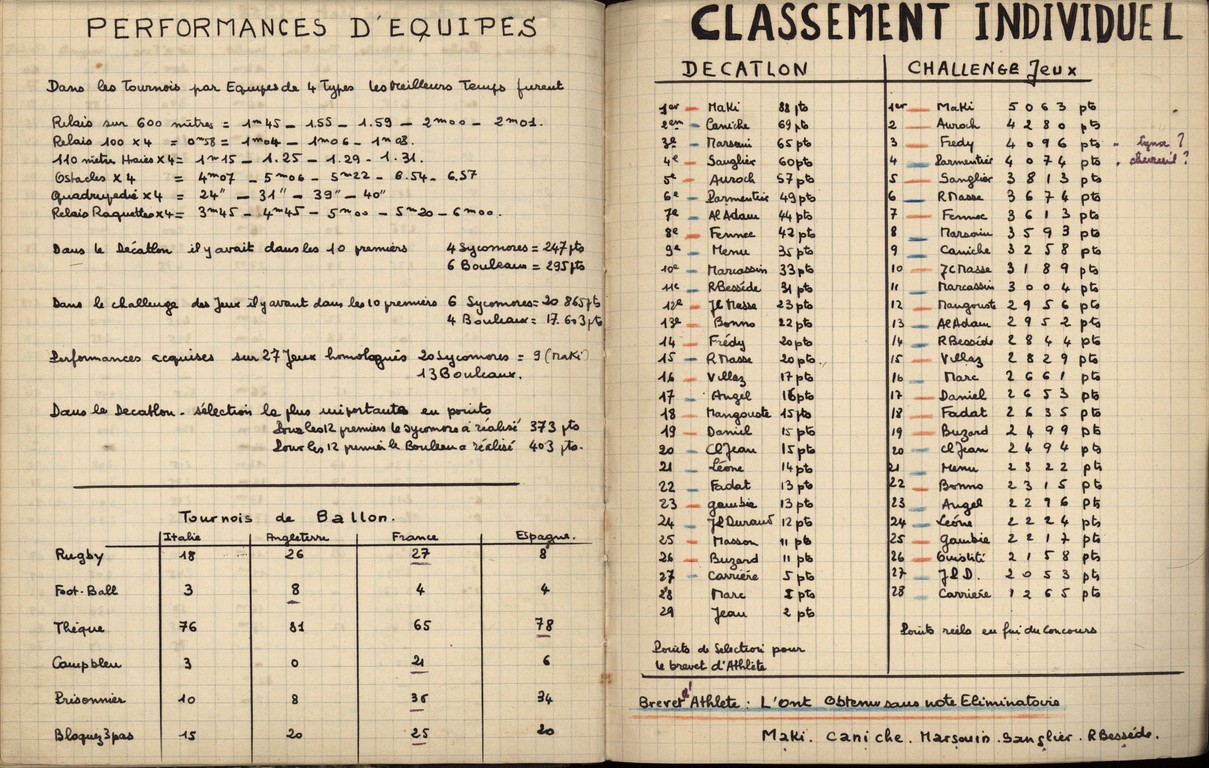 PERFORMANCES D'EQUIPES
Dans les Tournois par Equipes de 4 Types les Meilleurs Temps furent
Relais sur 600 mètres = 1m45 - 1.55 - 1.59 - 2m00 - 2m01.
Relais 100 x4 = 0m58 = 1m04 - 1m06 - 1m08.
110 mèter Haies x4 = 1m15 - 1.25 - 1.29 - 1.31.
Obstacles x4 = 4m07 - 5m06 - 5m22 - 6.54 - 6.57
Quadrupédie x4 = 24" - 31" - 39" - 40"
Relais Raquettes x4 = 3m45 - 4m45 - 5m00 - 5m20 - 6m00.
Dans le Décatlon il y avait dans les 10 premiers 4 Sycomores = 247 pts
6 Bouleaux = 295 pts
Dans le challenge des Jeux il y avant dans les 10 premiers 6 Sycomores = 20 865 pts
4 Bouleaux = 17.603 pts
Performances acquises sur 27 Jeux homologués 20 Sycomores = 9 (Maki)
13 Bouleaux.
Dans le Decatlon - Sélection la plus importante en points
Sous les 12 premiers le Sycomore a réalisé 373 pts
Sous les 12 premier le Bouleau a réalisé 403 pts.
Tournois de Ballon.
Italie Angleterre France Espagne.
Rugby 18 26 27 8
Foot-Ball 3 8 4 4
Thèque 76 81 65 78
Camp bleu 3 0 21 6
Prisonnier 10 8 36 34
Bloquez 3 pas 15 20 25 20
CLASSEMENT INDIVIDUEL
DECATLON
1er - Maki 88 pts
2em - Caniche 69 pts
3e - Marsouin 65 pts
4e - Sanglier 60 pts
5e - Auroch 57 pts
6e - Parmentier 49 pts
7e - Al Adam 44 pts
8e - Fennec 42 pts
9e - Menu 35 pts
10e - Marcassin 33 pts
11e - R Besséde 31 pts
12e - JC Masse 23 pts
13e - Bonno 22 pts
14 - Frédy 20 pts
15 - R Masse 20 pts.
16 - Villaz 17 pts
17 - Angel 16 pts
18 - Mangouste 15 pts
19 - Daniel 15 pts
20 - Cl Jean 15 pts
21 - Léone 14 pts
22 - Fadat 13 pts
23 - gambie 13 pts
24 - Jl Durand 12 pts
25 - Masson 11 pts
26 - Buzard 11 pts
27 - Carrière 5 pts
28 Marc 5 pts
29 Jeau 2 pts
Points de Selection pour
le brevet d'Athlète
CHALLENGE Jeux
1er - Maki 5063 pts
2 - Auroch 4280 pts
3 - Fredy 4096 pts
4 - Parmentier 4074 pts
5 - Sanglier 3813 pts
6 - R Masse 3674 pts
7 - Fennec 3613 pts
8 - Marsouin 3593 pts
9 - Caniche 3258 pts
10 - JC Masse 3189 pts
11 - Marcassin 3004 pts
12 - Mangouste 2956 pts
13 - Al Adam 2952 pts
14 - R Besséde 2844 pts
15 - Villaz 2829 pts
16 - Marc 2661 pts
17 - Daniel 2653 pts
18 - Fadat 2635 pts
19 - Buzard 2499 pts
20 - Cl Jean 2494 pts
21 - Menu 2322 pts
22 - Bonno 2315 pts
23 - Angel 2296 pts
24 - Leone 2224 pts
25 - gambie 2217 pts
26 - Ouistiti 2158 pts
27 - J l D. 2053 pts
28 - Carriere 1265 pts
Points réels en fin du Concours
chevreuil ?
Brevet d'Athlete : L'ont Obtenu sans note Eliminatoire
Maki. Caniche. Marsouin. Sanglier. R Besséde.